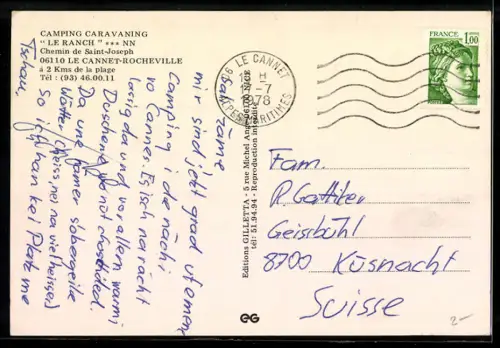 CAMPING CARAVANING
" LE RANCH " *** NN
Chemin de Saint-Joseph
06110 LE CANNET-ROCHEVILLE
à 2 Kms de la plage
Tél : (93) 46.00.11
zäme
mir sind jetzt grad ufemene
Camping i de nächi
vo Cannes. Es isch no rächt
lossig da und vor allem warmi
Dusche
Da une
Wätter (heiss, nei na viel heisser)
So ich han kei Platz me
Tschau
Editions GILLETTA - 5 rue Michel Ange 06100 NICE
tél: 51.94.94 - Reproduction interdite
06 LE CANNET
H
-7
1978
ALPES MARITIMES
FRANCE
1,00
Fam.
R. Gattiker
Geisbühl
8700 Küsnacht
Suisse
EG
2-